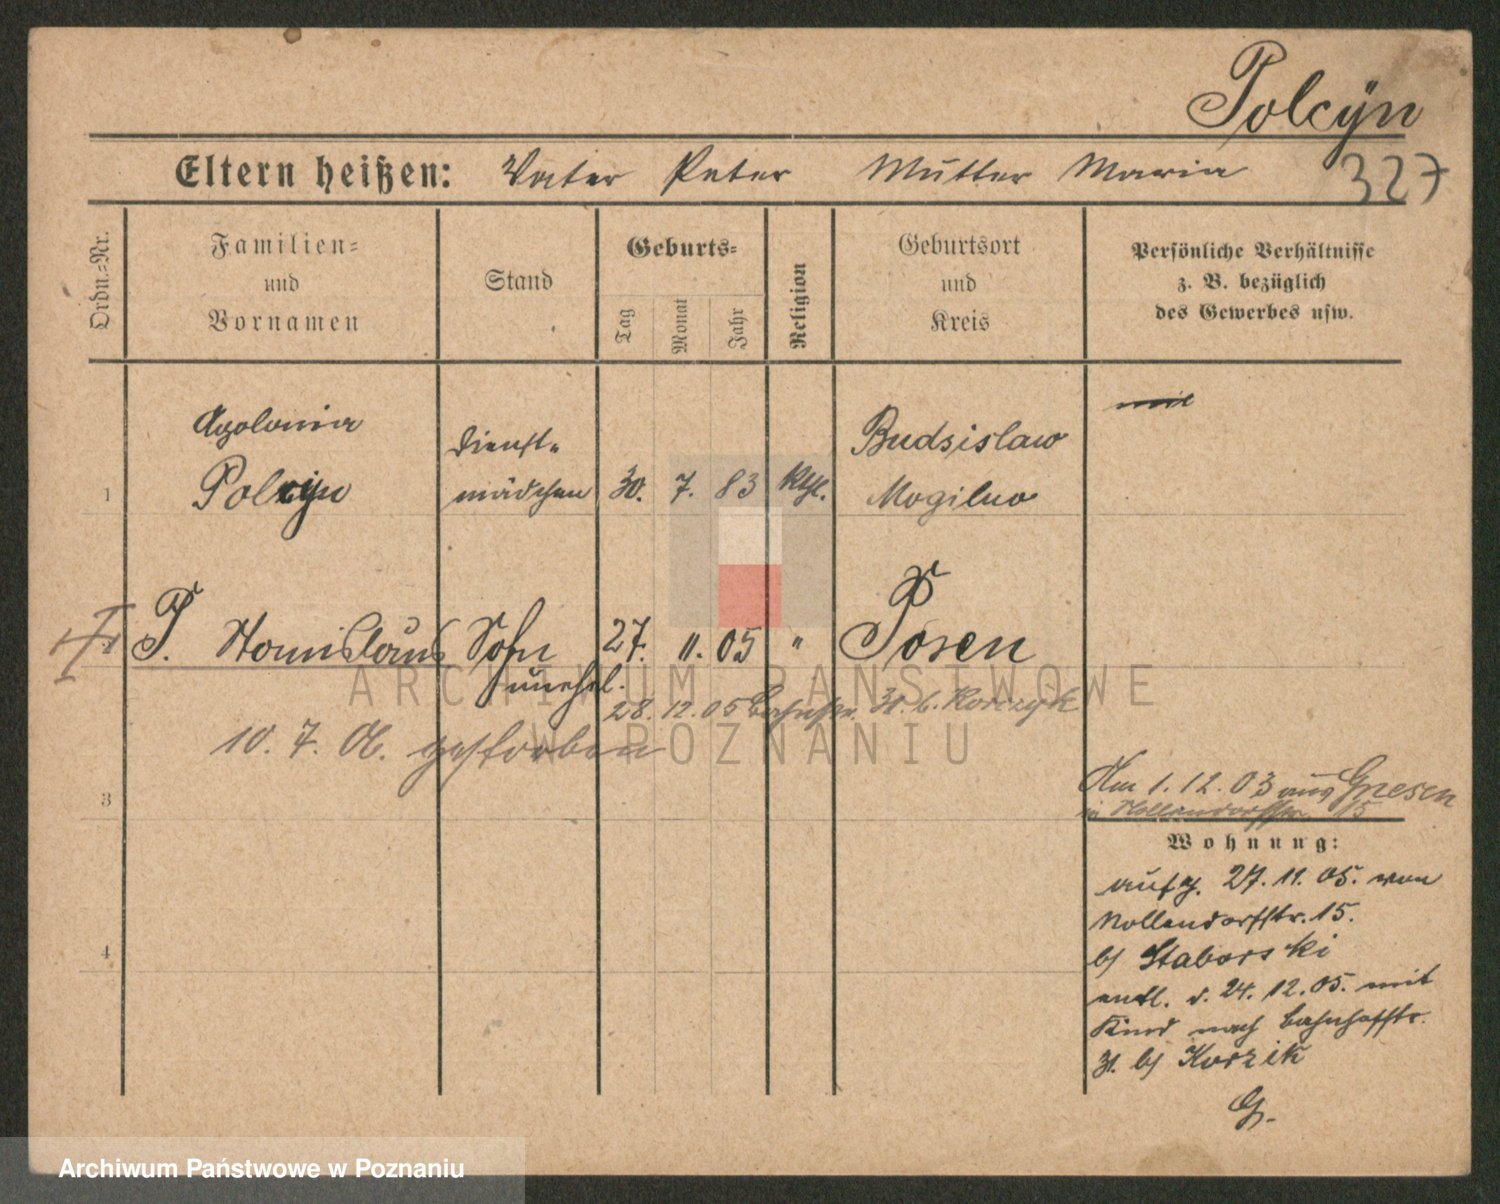 Polcÿn
327
Eltern heißen: Vater Peter Mutter Maria
Ordn.=Nr.
Familien= und Vornamen
Stand
Geburts=
Tag
Monat
Jahr
Religion
Geburtsort und Kreis
Persönliche Verhältnisse
z. B. bezüglich
des Gewerbes usw.
1
Apolonia
Polcyn
Dienst=
mädchen
30. 7. 83
kth.
Budsislaw
Mogilno
P. Stanislaus Sohn 27. 11. 05 " Posen
unehel.
28. 12. 05 Bahnhfstr. 31. b. Korczyk
10. 7. 06. gestorben
3
Am 1. 12. 03 aus Gnesen
in Nollendorfstr. 15
Wohnung:
aufg. 27. 11. 05. von
Nollendorfstr. 15.
b/ Staborski
entl. d. 24. 12. 05. mit
Kind nach Bahnhofstr.
31. b/ Korzik
G.
4
ARCHIWUM PAŃSTWOWE
W POZNANIU
Archiwum Państwowe w Poznaniu